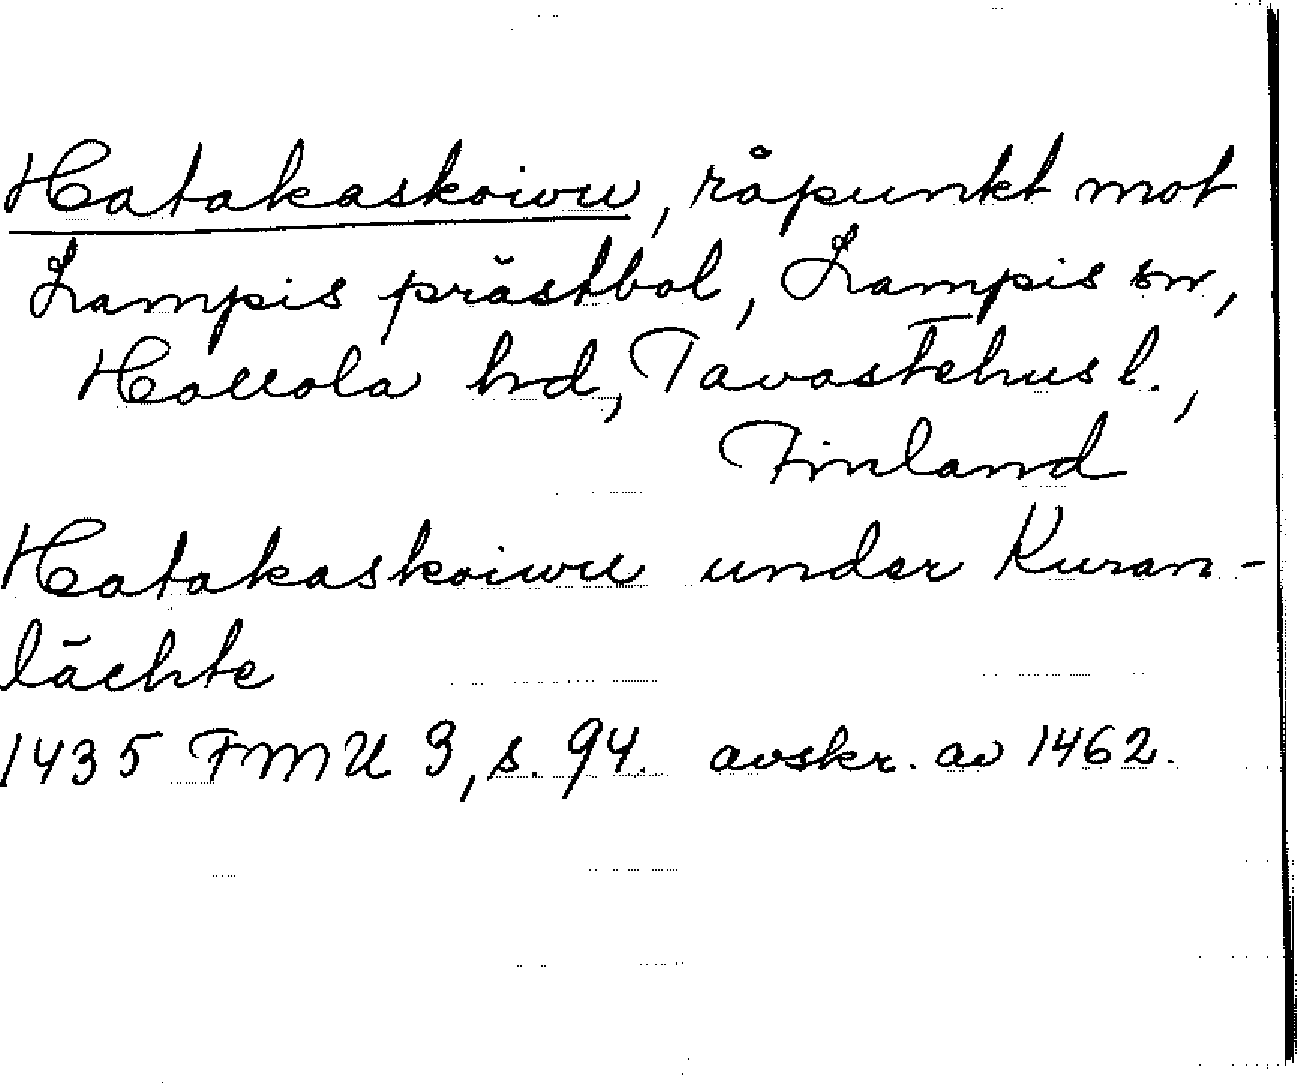 Hatakaskoiwu, råpunkt mot
Lampis prästbol, Lampis sn,
Hollola hd, Tavastehus l.,
Finland
Hatakaskoiwu under Kuran-
lächte
1435 FMU 3, s. 94. avskr. av 1462.